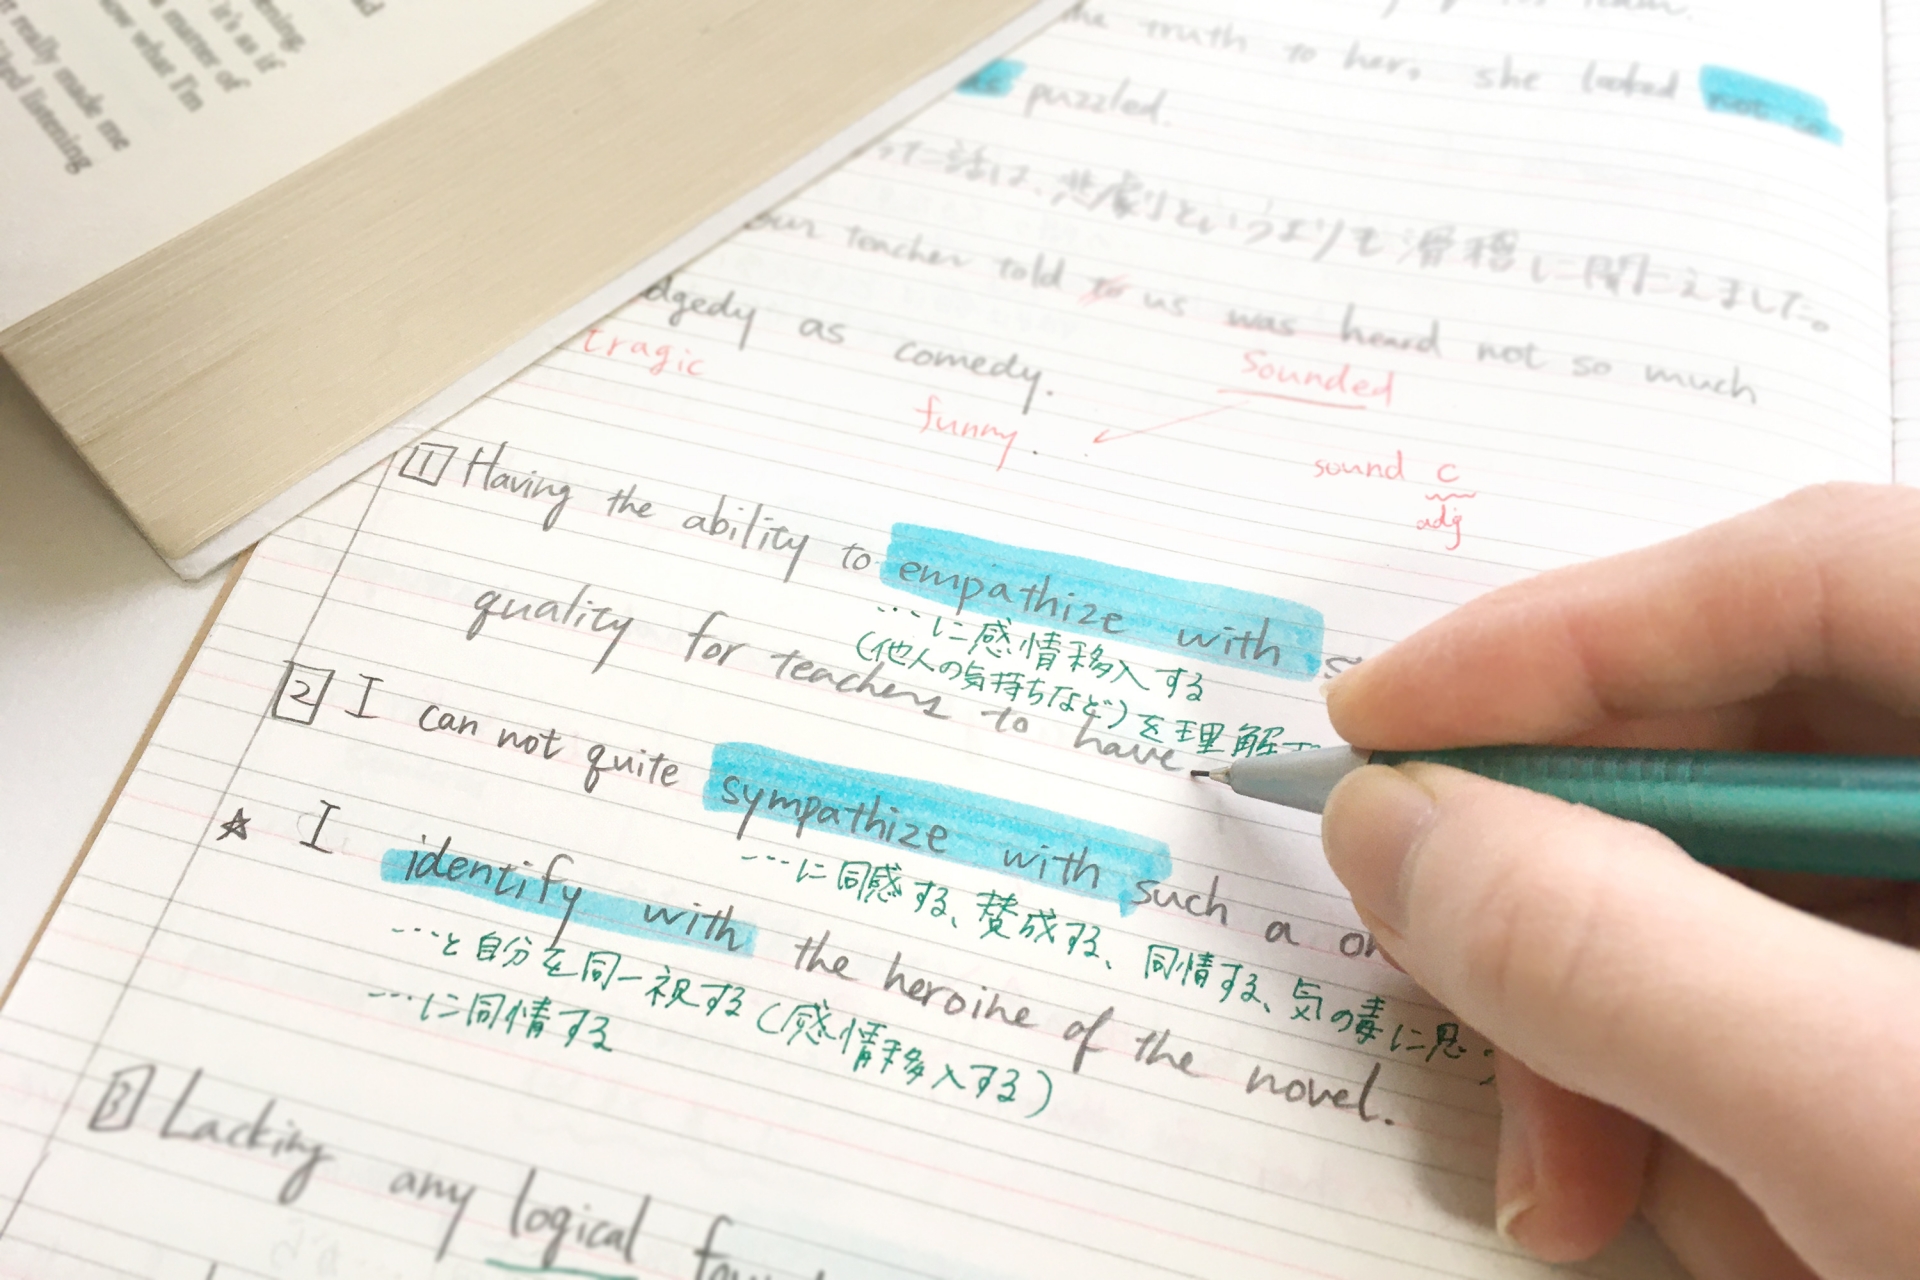 really made me
listening
matter of
what I'm
it's as if
the truth to her, she looked not so
puzzled.
った話は、悲劇というよりも滑稽に聞こえました。
our teacher told to us was heard not so much
agedy as comedy.
tragic
Sounded
funny.
sound c
adj
1 Having the ability to empathize with
…に感情移入する
(他人の気持ちなど)を理解す
quality for teachers to have
2 I can not quite sympathize with such a
…に同感する、賛成する、同情する、気の毒に思
☆ I identify with the heroine of the novel.
…と自分を同一視する(感情移入する)
…に同情する
3 Lacking any logical